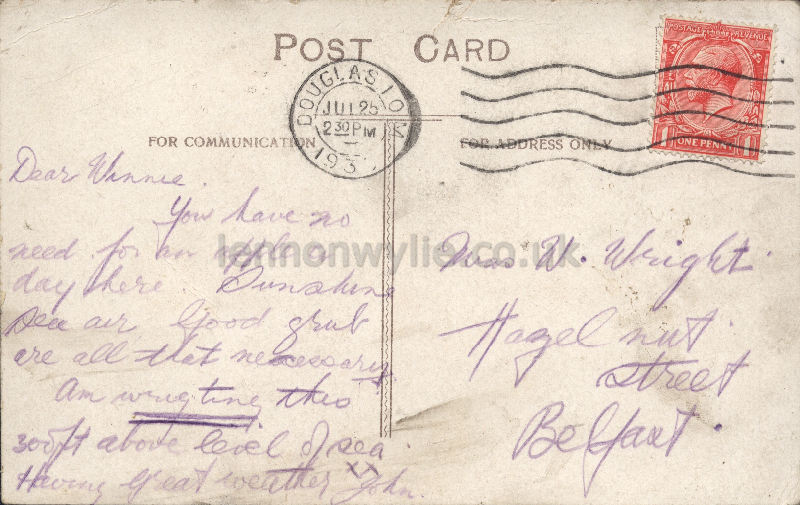 POST CARD
DOUGLAS I.O.M
JUL 25
2 30 PM
193
POSTAGE REVENUE
1 ONE PENNY 1
FOR COMMUNICATION
FOR ADDRESS ONLY
Dear Winnie.
You have no
need for an apple a
day here Sunshine
Sea air Good grub
are all that necessary.
Am wrigting this
300ft above level of sea.
Having great weather John.
XX
lennonwylie.co.uk
Miss W. Wright.
Hazel nut.
Street
Belfast.